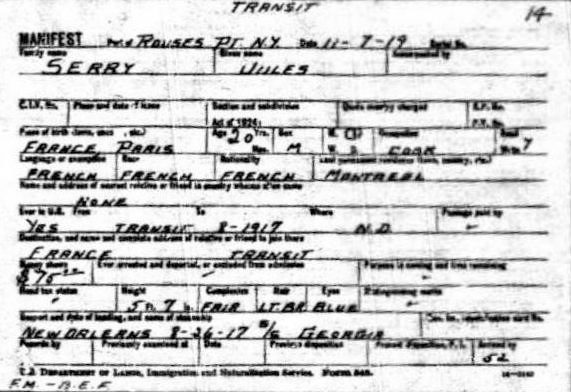 TRANSIT
14
MANIFEST Port of ROUSES PT. N.Y. Date 11-7-19 Serial No.
Family name Given name Accompanied by
SERRY JULES
C.I.V. No. Place and date Section and subdivision Quota country charged R.P. No.
Act of 1924: P.V. No.
Place of birth (town, etc.) Age 20 Yrs. Sex M. S Occupation Read
FRANCE, PARIS Mos. M W. D. COOK Write Y
Language or exemption Race Nationality Last permanent residence (town, country, etc.)
FRENCH FRENCH FRENCH MONTREAL
Name and address of nearest relative or friend in country whence alien came
NONE
Ever in U.S. From To Where Passage paid by
YES TRANSIT 8-1917 N.O.
Destination, and name and complete address of relative or friend to join there
FRANCE TRANSIT
Money shown Ever arrested and deported, or excluded from admission Purpose in coming and time remaining
$75.00
Head tax status Height Complexion Hair Eyes Distinguishing marks
5 Ft. 7 In. FAIR LT. BR. BLUE
Seaport and date of landing, and name of steamship
NEW ORLEANS 8-26-17 S/S GEORGIA
Records by Previously examined at Date Previous disposition Present disposition Arrived by
U.S. DEPARTMENT OF LABOR, Immigration and Naturalization Service. FORM 548.
F.M. - B.E.F.